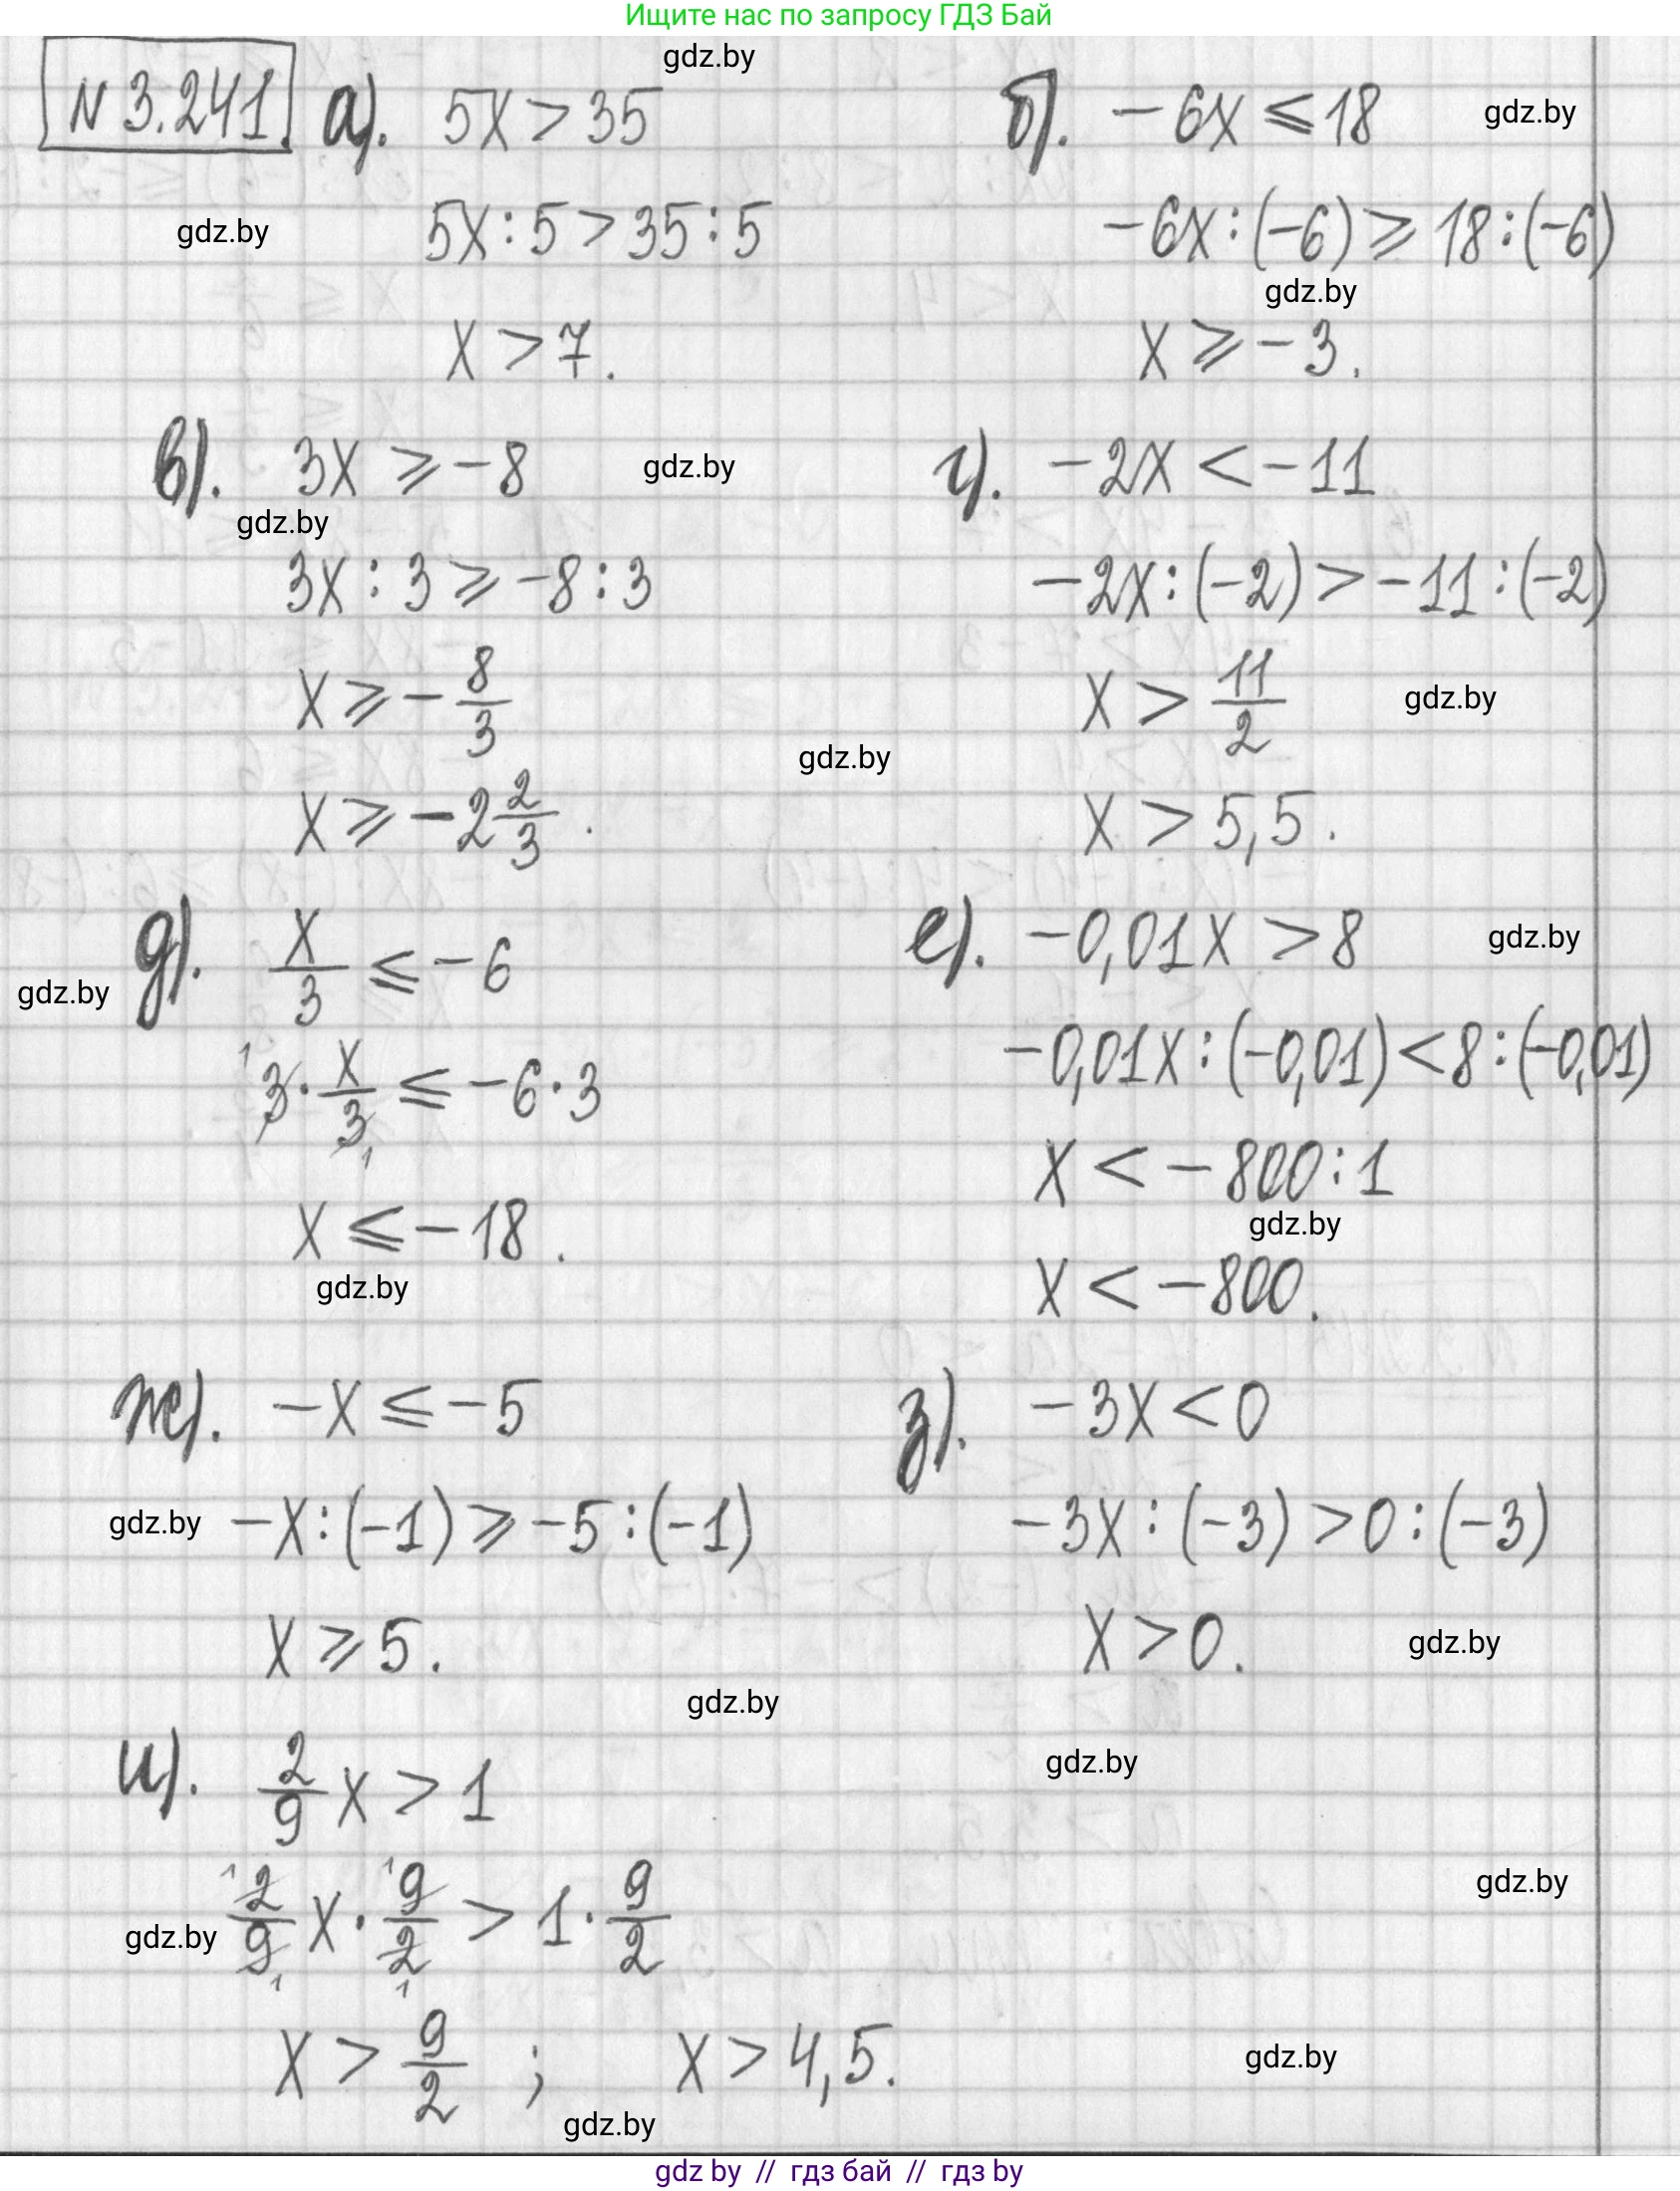 Ищите нас по запросу ГДЗ Бай
gdz.by
N 3.241. а). 5x > 35
б). -6x ⩽ 18 gdz.by
gdz.by 5x : 5 > 35 : 5
-6x : (-6) ⩾ 18 : (-6)
gdz.by
x > 7.
x ⩾ -3.
в). 3x ⩾ -8 gdz.by
г). -2x < -11
gdz.by
3x : 3 ⩾ -8 : 3
-2x : (-2) > -11 : (-2)
x ⩾ - 8/3
x > 11/2 gdz.by
gdz.by
x ⩾ -2 2/3.
x > 5,5.
д). x/3 ⩽ -6
е). -0,01x > 8 gdz.by
gdz.by
1 3 · x/3 1 ⩽ -6 · 3
-0,01x : (-0,01) < 8 : (-0,01)
x < -800 : 1
x ⩽ -18.
gdz.by
gdz.by
x < -800.
ж). -x ⩽ -5
з). -3x < 0
gdz.by -x : (-1) ⩾ -5 : (-1)
-3x : (-3) > 0 : (-3)
x ⩾ 5.
x > 0. gdz.by
gdz.by
и). 2/9 x > 1
gdz.by
gdz.by
gdz.by 1 2/9 1 x · 1 9/2 1 > 1 · 9/2
x > 9/2 ; x > 4,5.
gdz.by
gdz.by
gdz by // гдз бай // гдз by